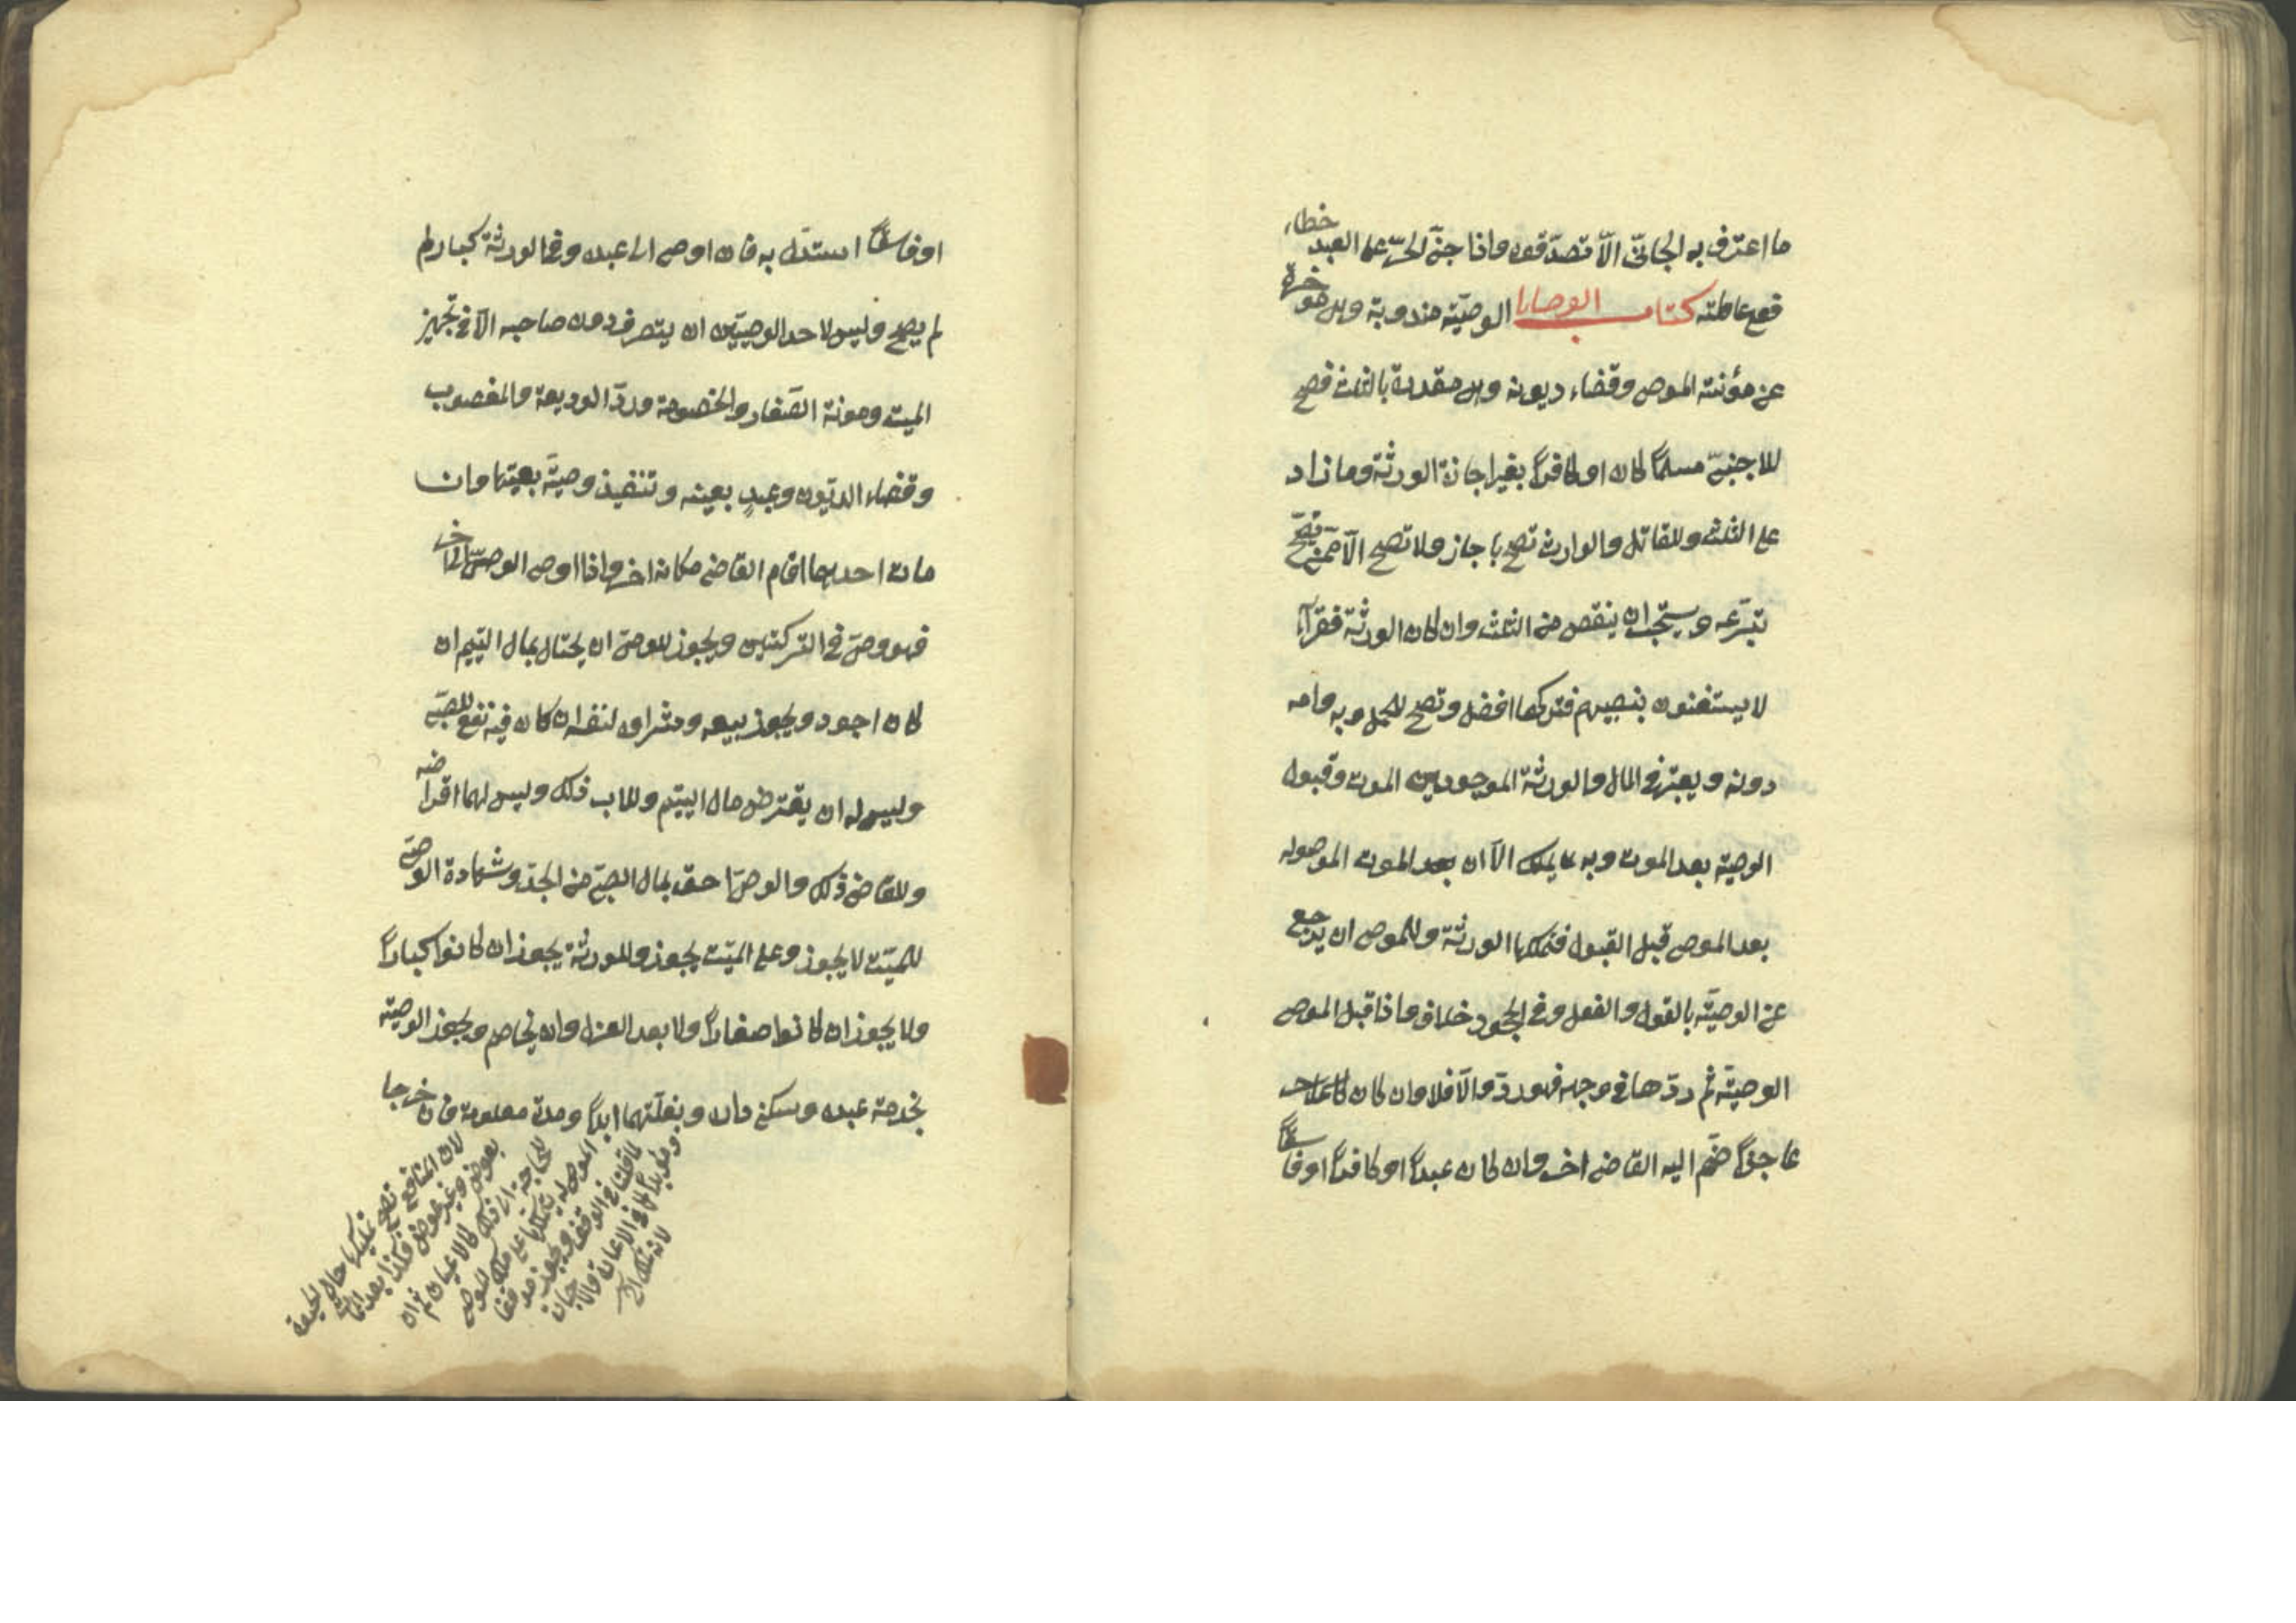 ما اعترف به الجانى الّا تصدّقوه واذا جنى الحرّ على العبد خطاء
فعلى عاقلته كتاب الوصايا الوصيّة مندوبة وهى مؤخرة
عن مؤنة الموصى وقضاء ديونه وهى مقدرة بالثلث فتصح
للاجنبىّ مسلماً كان او كافراً بغير اجازة الورثة وما زاد
على الثلث وللقاتل والوارث تصح باجاز ولا تصح الّا ممن يصحّ
تبرّعه ويستحبّ ان ينقص من الثلث وان كان الورثة فقرآء
لا يستغنون بنصيبهم فتركها افضل وتصح للحمل وبه وامه
دونه ويعتبر فى المال والورثة الموجودين الموت وقبول
الوصية بعد الموت وبه يملك الّا ان بعد الموت الموصى له
بعد الموصى قبل القبول فتملكها الورثة وللموصى ان يرجع
عن الوصيّة بالقول والفعل وفى الجحود خلاف واذا قبل الموصى
الوصيّة ثم ردّها فى وجهه فهو ردّ والّا فلا وان كان
عاجزاً ضمّ اليه القاضى اخر وان كان عبداً او كافراً او فاسقاً
او فاسقاً استدل به فان اوصى الى عبده وفى الورثة كبار لم
لم يصح وليس لاحد الوصيّين ان يتصرف دون صاحبه الّا فى تجهيز
الميت ومونة الصّغار والخصومة وردّ الوديعة والمغصوب
وقضاء الديون وعبدٍ بعينه وتنفيذ وصيّة بعينها وان
مات احدهما اقام القاضى مكانه اخر واذا اوصى الوصىّ الى اخر
فهو وصىّ فى التركتين ويجوز للوصىّ ان يحتال بمال اليتيم ان
كان اجود ويجوز بيعه وشراؤه لنفسه ان كان فيه نفع للصبىّ
وليس له ان يقترض مال اليتيم وللاب ذلك وليس لهما اقراضه
وللقاضى ذلك والوصىّ احق بمال الصبىّ من الجدّ وشهادة الوصىّ
للميّت لا يجوز وعلى الميّت يجوز وللورثة يجوز ان كانوا كباراً
ولا يجوز ان كانوا صغاراً ولا بعد العزل وان لم يخاصم ويجوز الوصية
بخدمة عبده وسكنى داره وبغلّتهما ابداً ومدة معلومة فان خرجا
لان المنافع تصح تمليكها حال الحيوة
بعوض وغير عوض فكذا بعد الممات
للحاجة الى ذلك كالاعيان
الموصى له يتملكها على ملك الموصى